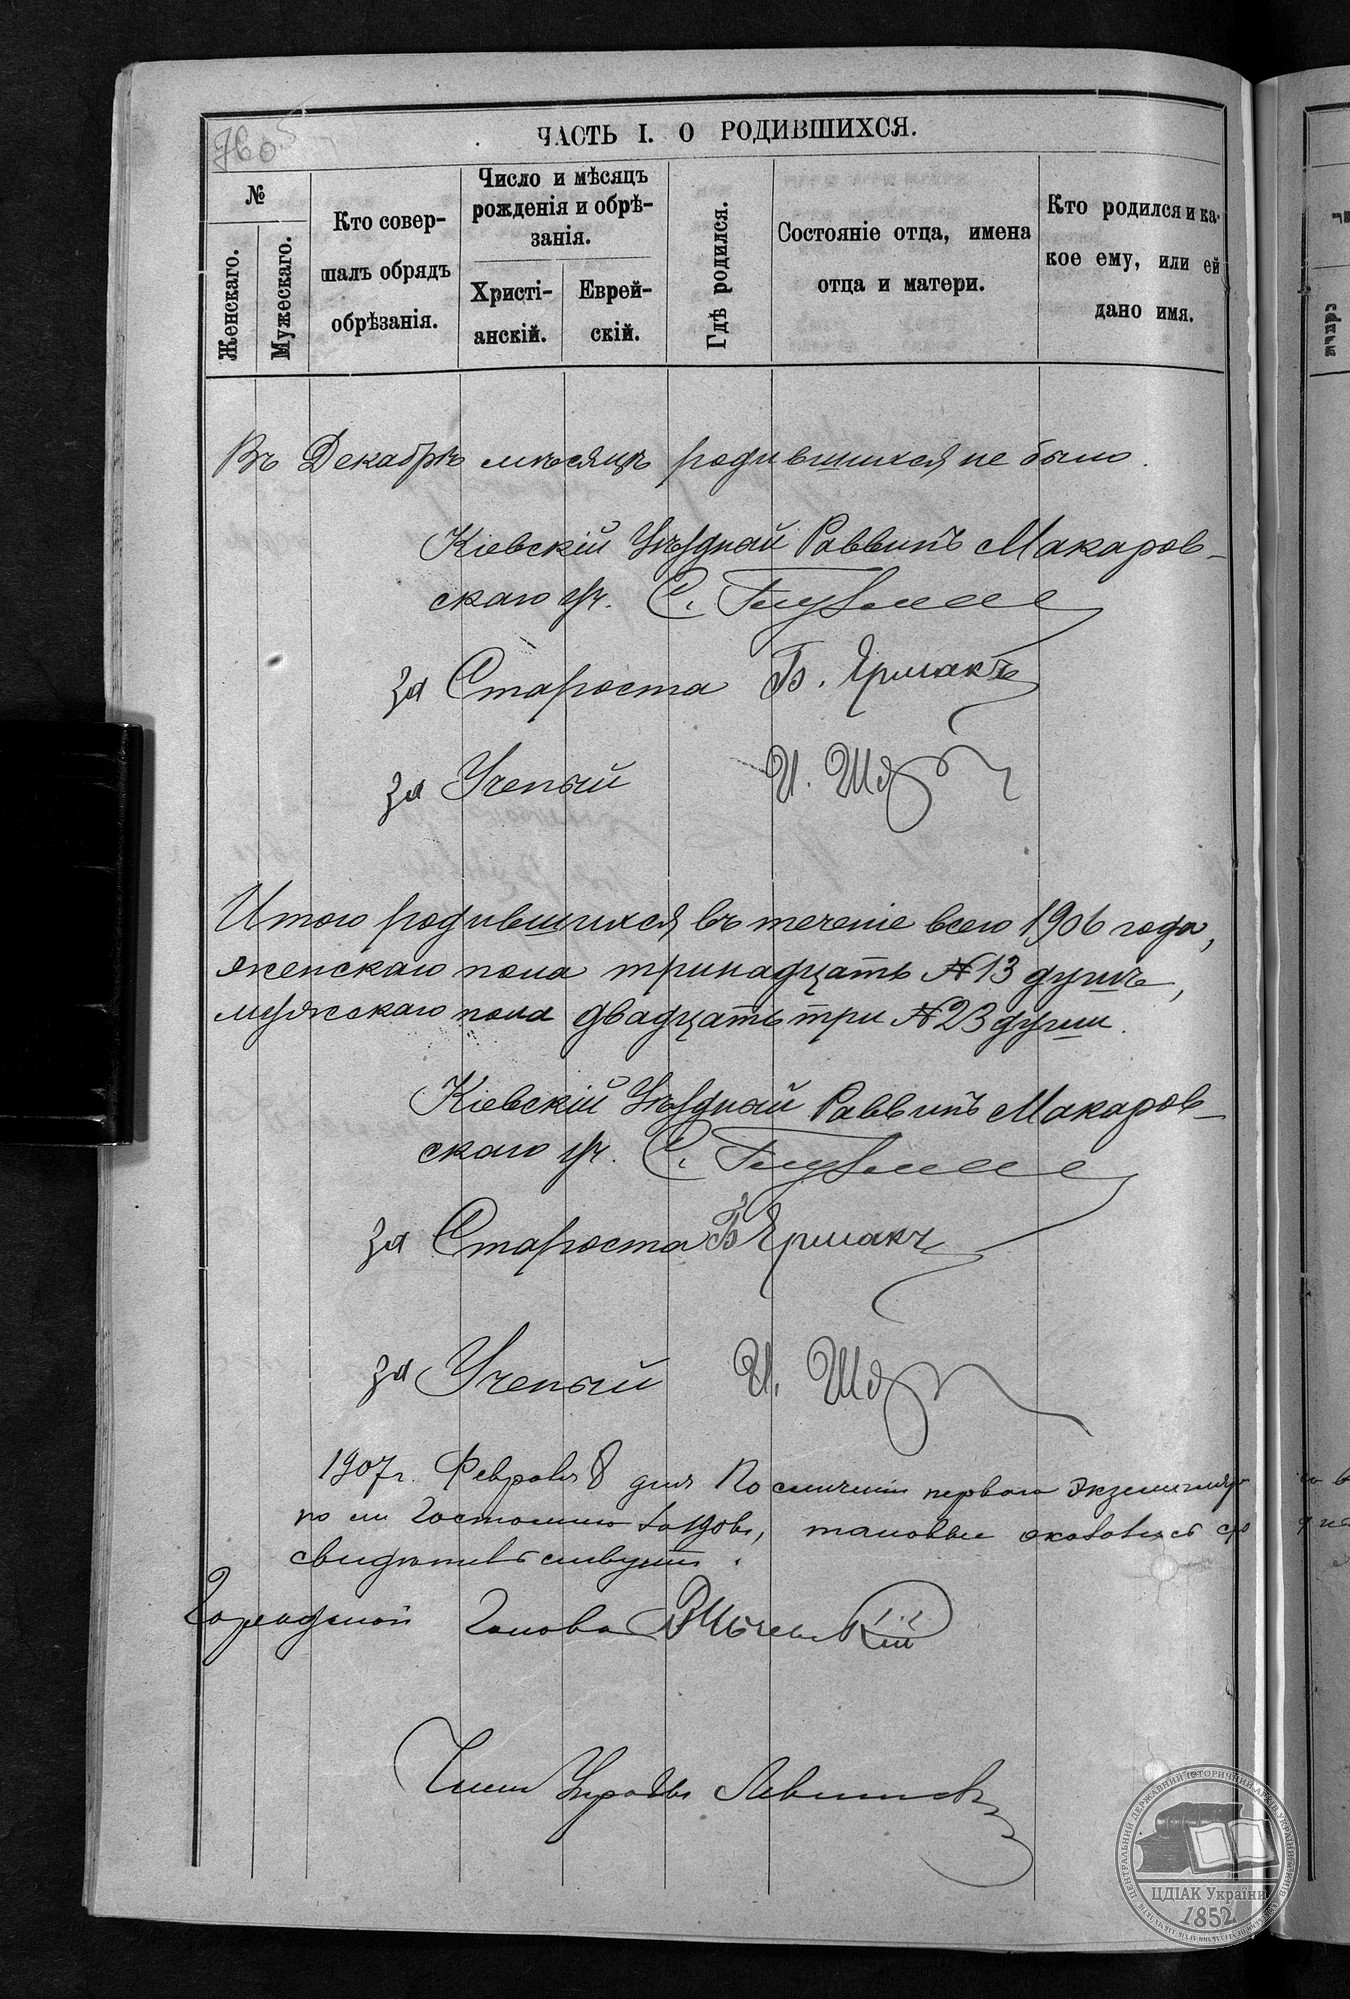 ЧАСТЬ I. О РОДИВШИХСЯ.
№
Женскаго.
Мужескаго.
Кто совер-
шалъ обрядъ
обрѣзанія.
Число и мѣсяцъ
рожденія и обрѣ-
занія.
Христі-
анскій.
Еврей-
скій.
Гдѣ родился.
Состояніе отца, имена
отца и матери.
Кто родился и ка-
кое ему, или ей
дано имя.
Въ Декабрѣ мѣсяцѣ родившихся не было.
Кіевскій Уѣздный Раввинъ Макаров-
скаго уч. С.
за Староста Б. Ермакъ
за Ученый И.
Итого родившихся въ теченіе всего 1906 года,
женскаго пола тринадцать №13 душъ,
мужскаго пола двадцать три №23 души.
Кіевскій Уѣздный Раввинъ Макаров-
скаго уч. С.
за Староста Б Ермакъ
за Ученый И.
1907 г. Февраля 8 дня По сличеніи перваго экземпляра
таковые
Городской Голова
Член Управы
ЦЕНТРАЛЬНИЙ ДЕРЖАВНИЙ ІСТОРИЧНИЙ АРХІВ УКРАЇНИ, М. КИЇВ
ЦДІАК України
1852